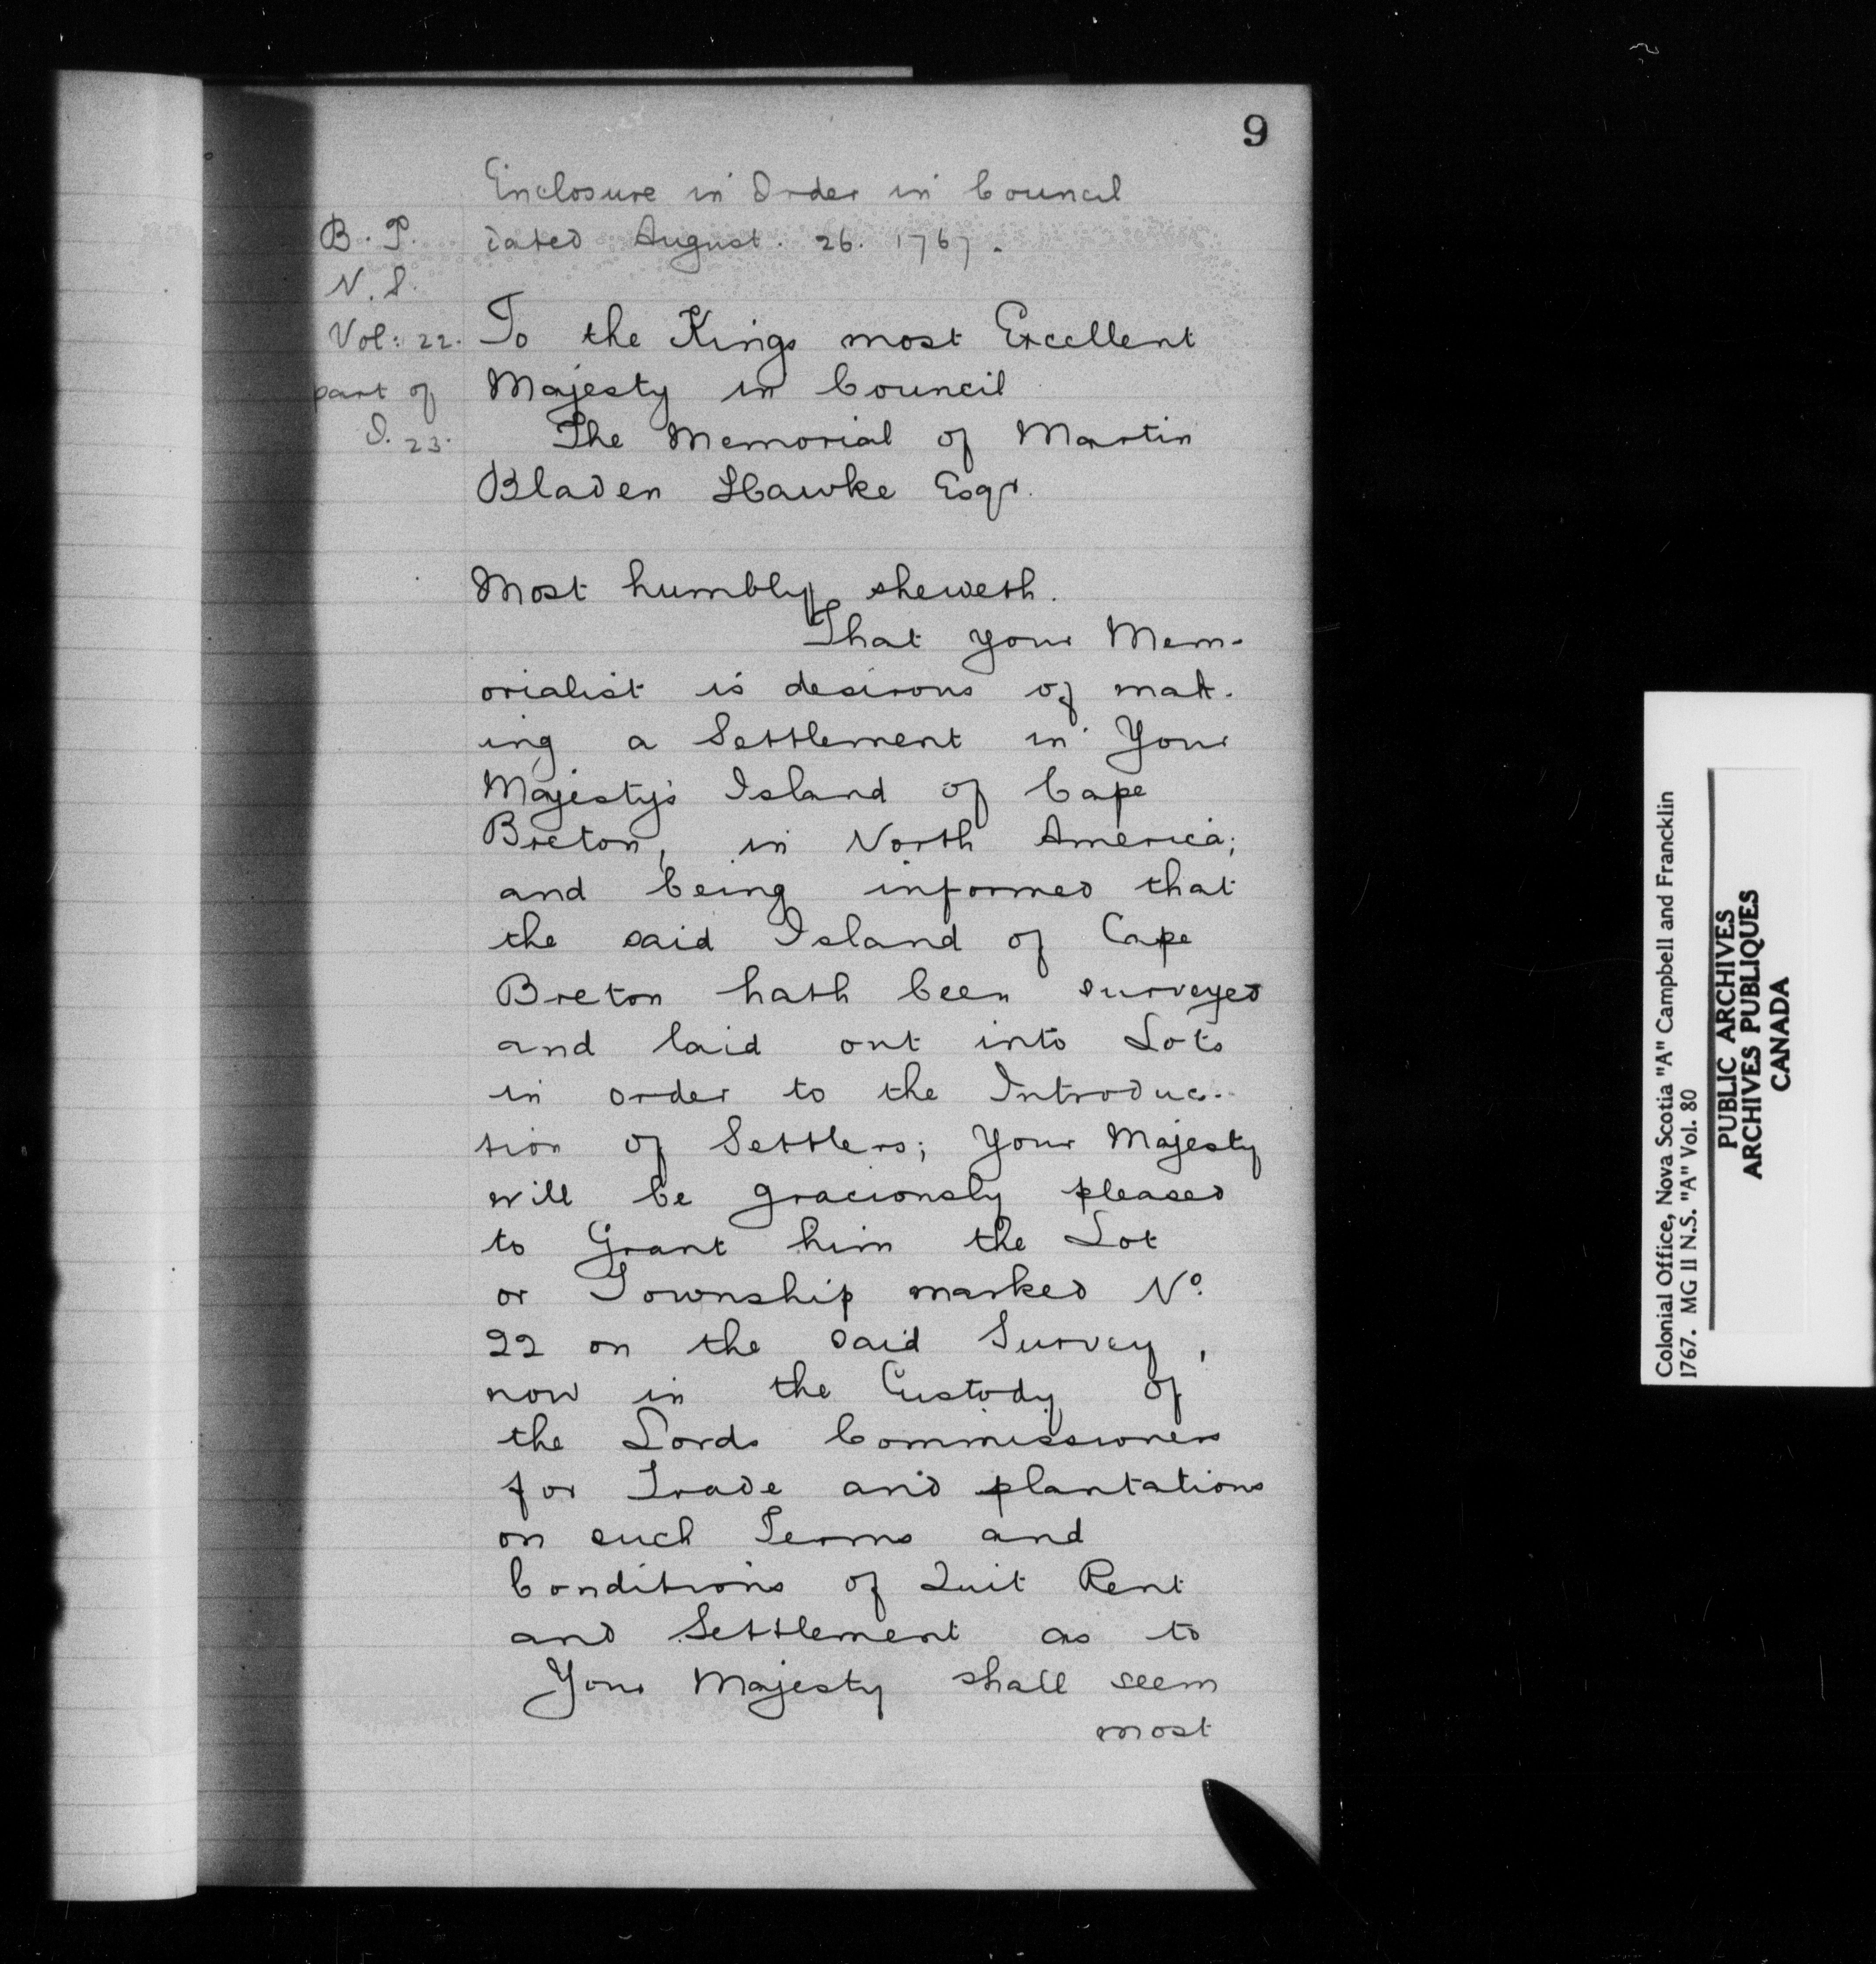 9
Enclosure in Order in Council
dated August. 26. 1767.
B. T.
N. S.
Vol: 22.
part of
23.
To the Kings most Excellent
Majesty in Council
The Memorial of Martin
Bladen Hawke Esqr.
Most humbly sheweth.
That your Mem-
orialist is desirous of mak-
ing a Settlement in Your
Majesty's Island of Cape
Breton, in North America;
and being informed that
the said Island of Cape
Breton hath been surveyed
and laid out into Lots
in order to the Introduc-
tion of Settlers; Your Majesty
will be graciously pleased
to Grant him the Lot
or Township marked No.
22 on the said Survey,
now in the Custody of
the Lords Commissioners
for Trade and plantations
on such Terms and
Conditions of Quit Rent
and Settlement as to
Your Majesty shall seem
most
Colonial Office, Nova Scotia "A" Campbell and Francklin
1767. MG 11 N.S. "A" Vol. 80
PUBLIC ARCHIVES
ARCHIVES PUBLIQUES
CANADA